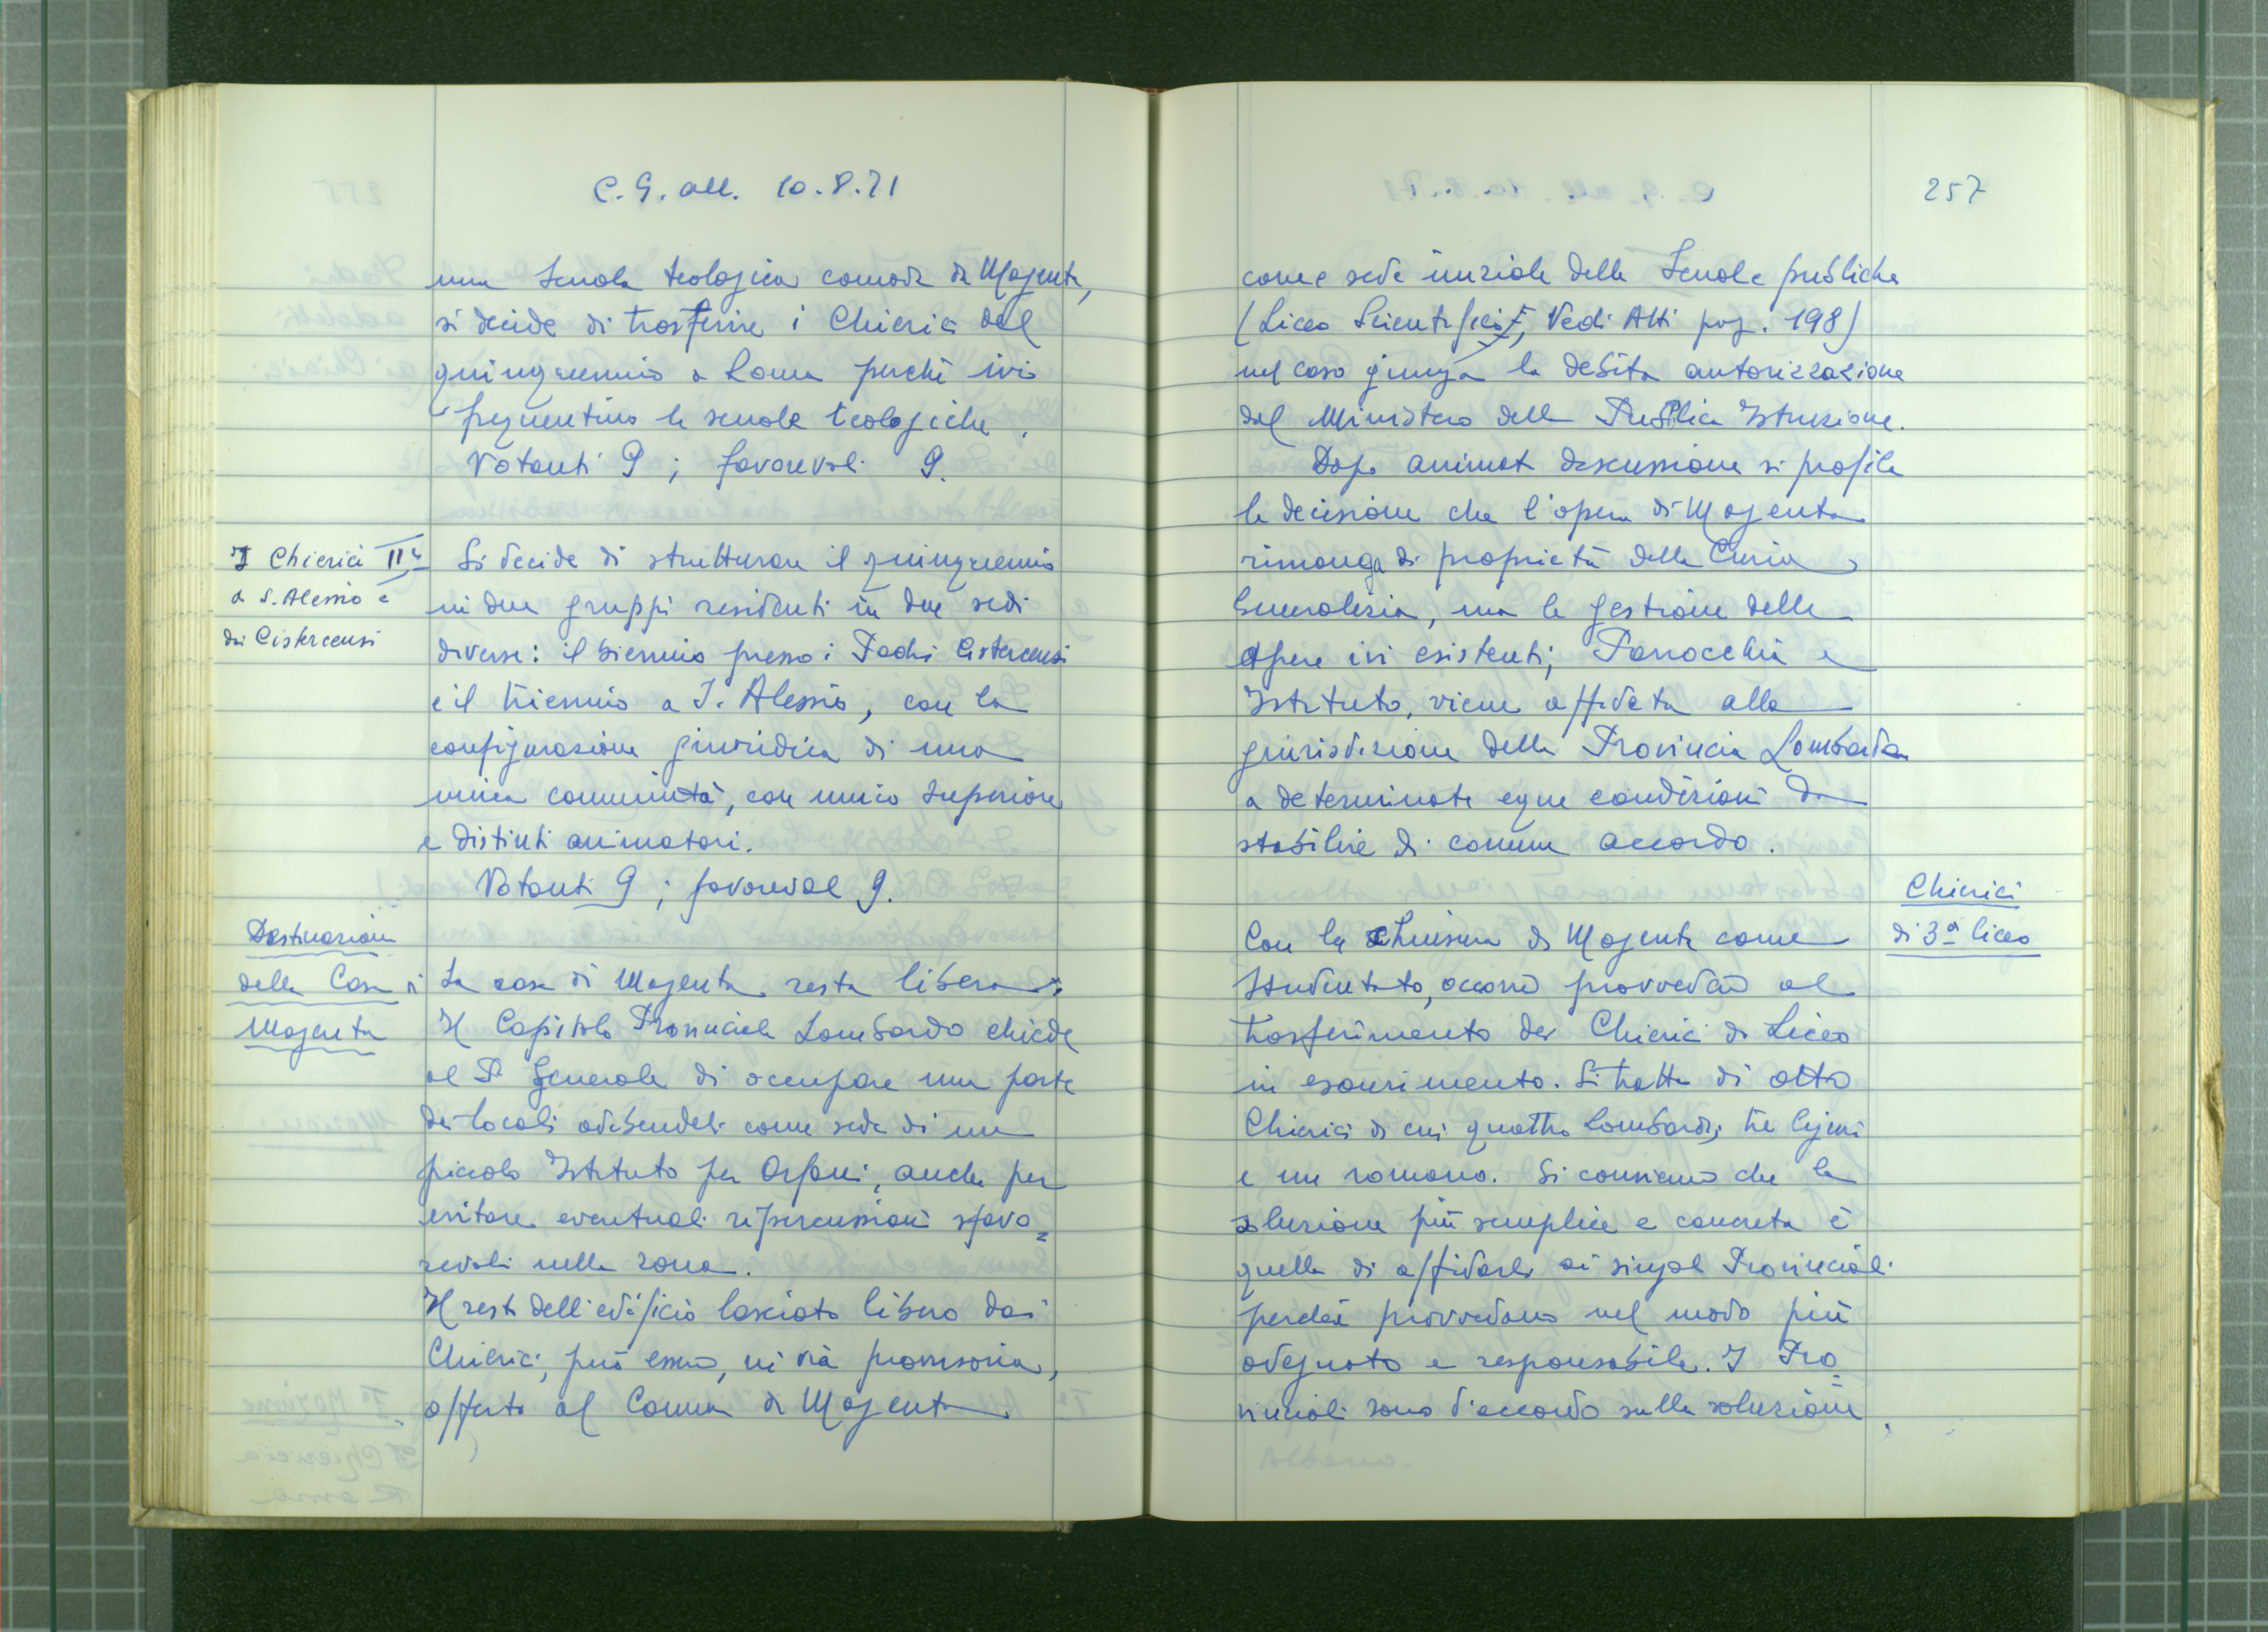 C.G. all. 10.8.71
una Scuola teologica comoda da Magenta,
si decide di trasferire i Chierici del
quinquennio a Roma perché ivi
frequentino le scuole teologiche.
Votanti 9; favorevoli 9.
I Chierici
a S. Alessio e
dai Cistercensi
Si decide di strutturare il quinquennio
in due gruppi residenti in due sedi
diverse: il biennio presso i Padri Cistercensi
e il triennio a S. Alessio, con la
configurazione giuridica di una
unica comunità, con unico Superiore
e distinti animatori.
Votanti 9; favorevoli 9.
Destinazione
della Casa di
Magenta
La casa di Magenta resta libera.
Il Capitolo Provinciale Lombardo chiede
al P. Generale di occupare una parte
dei locali adibendoli come sede di un
piccolo Istituto per Orfani, anche per
evitare eventuali ripercussioni sfavo=
revoli nella zona.
Il resto dell'edificio lasciato libero dai
Chierici, può essere, in via provvisoria,
offerto al Comune di Magenta
257
come sede iniziale delle Scuole pubbliche
(Liceo Scientifico, Vedi Atti pag. 198)
nel caso giunga la debita autorizzazione
dal Ministero della Pubblica Istruzione.
Dopo animata discussione si profila
la decisione che l'opera di Magenta
rimanga di proprietà della Curia
Generalizia, ma la gestione delle
opere ivi esistenti, Parrocchia e
Istituto, viene affidata alla
giurisdizione della Provincia Lombarda
a determinate eque condizioni da
stabilire di comune accordo.
Chierici
di 3ª liceo
Con la chiusura di Magenta come
Studentato, occorre provvedere al
trasferimento dei Chierici di Liceo
in esaurimento. Si tratta di otto
Chierici di cui quattro Lombardi, tre liguri
e un romano. Si conviene che la
soluzione più semplice e concreta è
quella di affidarli ai singoli Provinciali
perché provvedano nel modo più
adeguato e responsabile. I Pro=
vinciali sono d'accordo sulla soluzione